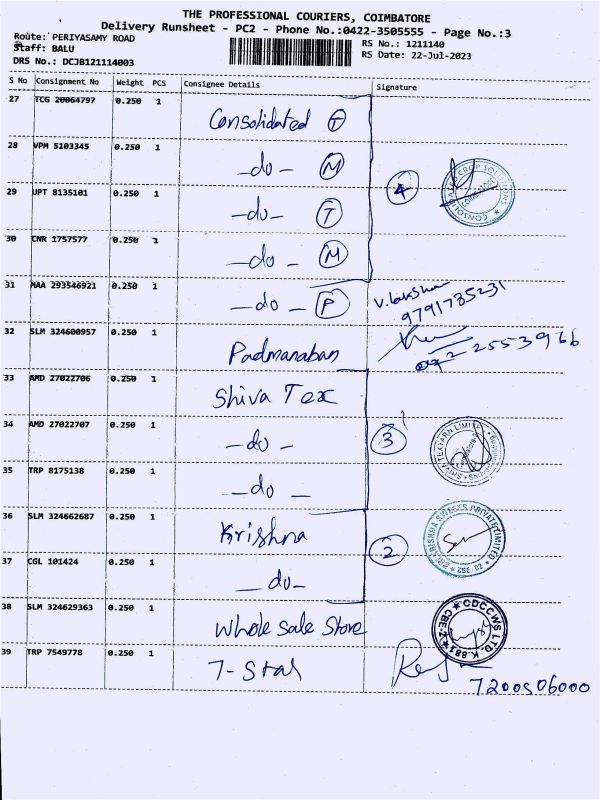 THE PROFESSIONAL COURIERS, COIMBATORE
Delivery Runsheet - PC2 - Phone No.:0422-3505555 - Page No.:3
Route: PERIYASAMY ROAD
RS No.: 1211140
Staff: BALU
RS Date: 22-Jul-2023
DRS No.: DCJB121114003
S No Consignment No Weight PCS Consignee Details Signature
27 TCG 20064797 0.250 1 Consolidated T
28 VPM 5103345 0.250 1 -do- M
29 UPT 8135101 0.250 1 -do- T
4
CONSOLIDATED CROP SOLUTIONS
30 CNR 1757577 0.250 1 -do- M
31 MAA 293546921 0.250 1 -do- P
9791735231
32 SLM 324600957 0.250 1 Padmanaban
2553966
33 AMD 27022706 0.250 1 Shiva Tex
34 AMD 27022707 0.250 1 -do-
3
SHIVA TEXYARN LIMITED
35 TRP 8175138 0.250 1 -do-
36 SLM 324662687 0.250 1 Krishna
2
SRI KRISHNA SWEETS PRIVATE LIMITED
37 CGL 101424 0.250 1 -do-
38 SLM 324629363 0.250 1 Whole sale Store
CDCCWS LTD. K.881 CBE-2
39 TRP 7549778 0.250 1 7-Star
7200506000